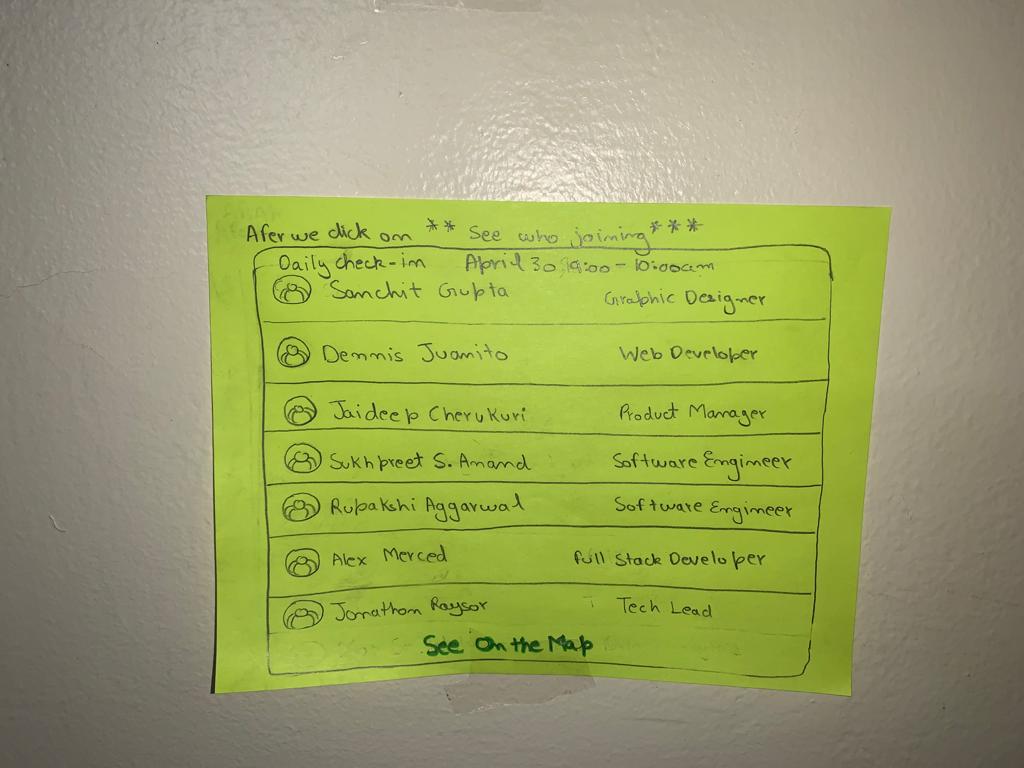 Afer we click on ** See who joining***
Daily check-in April 30 9:00 - 10:00am
Sanchit Gupta Graphic Designer
Dennis Juanito Web Developer
Jaideep Cherukuri Product Manager
Sukhpreet S. Anand Software Engineer
Rupakshi Aggarwal Software Engineer
Alex Merced full Stack Developer
Jonathan Raysor Tech Lead
See On the Map